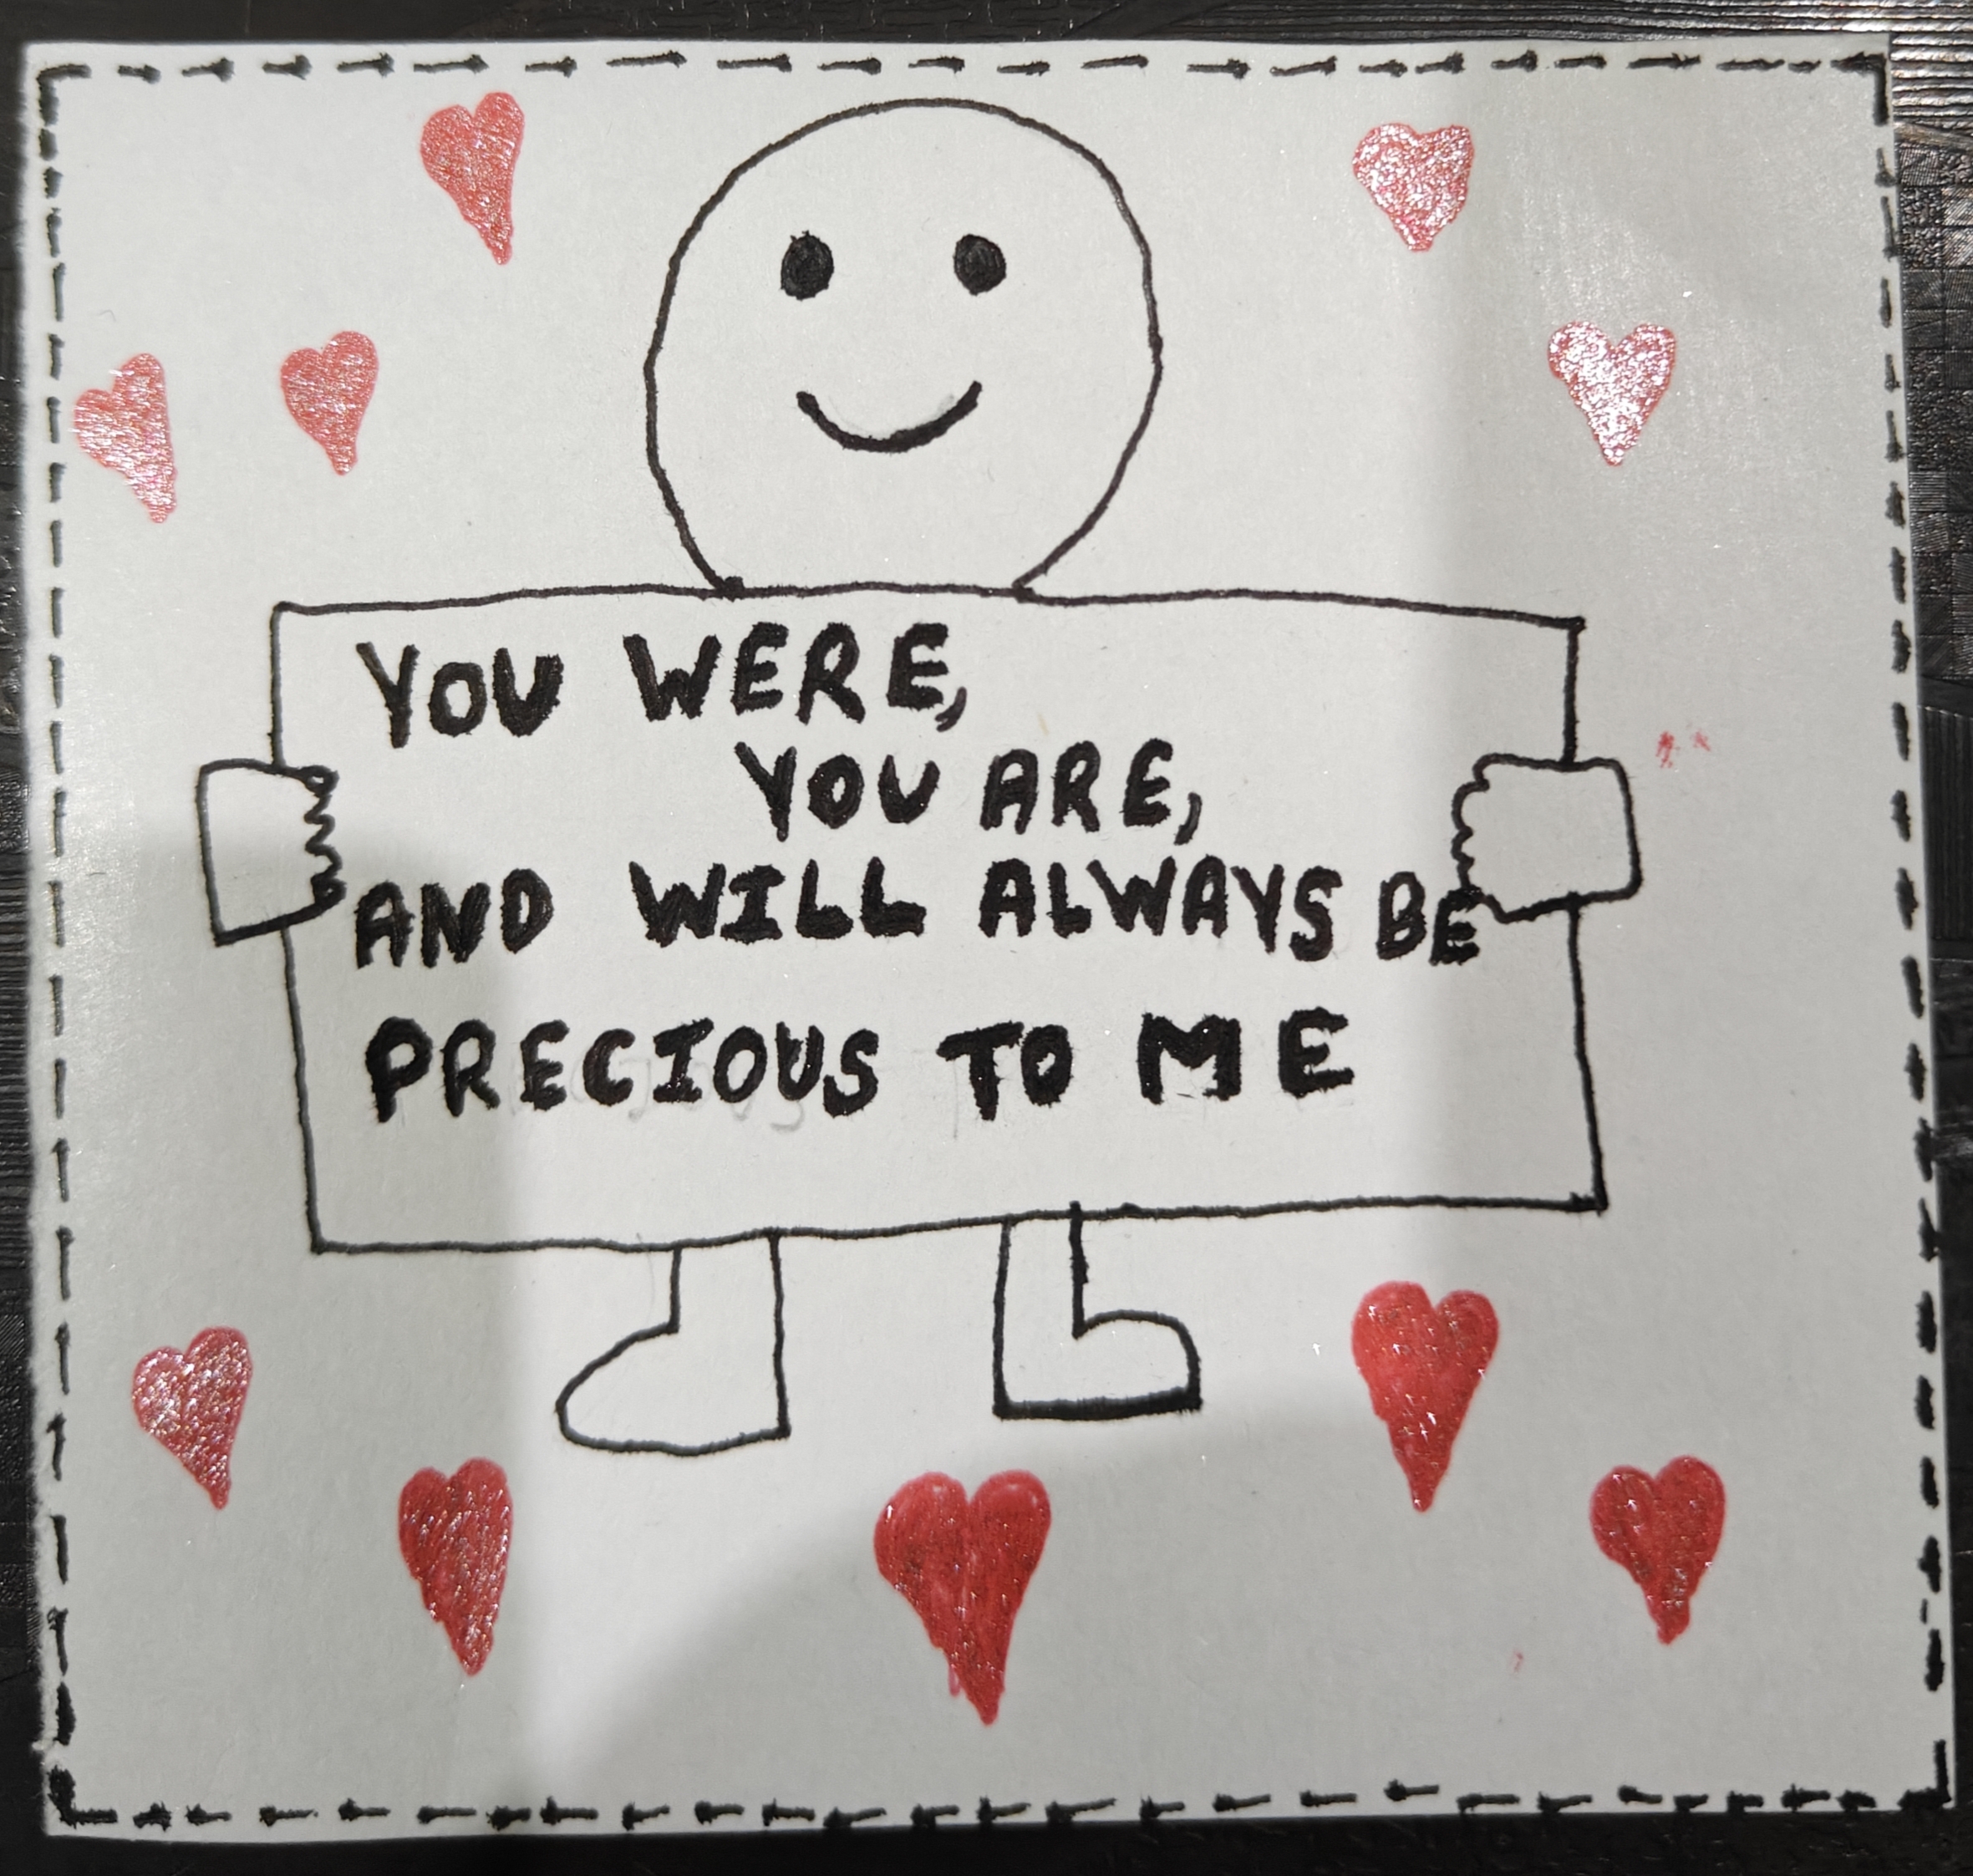 YOU WERE,
YOU ARE,
AND WILL ALWAYS BE
PRECIOUS TO ME